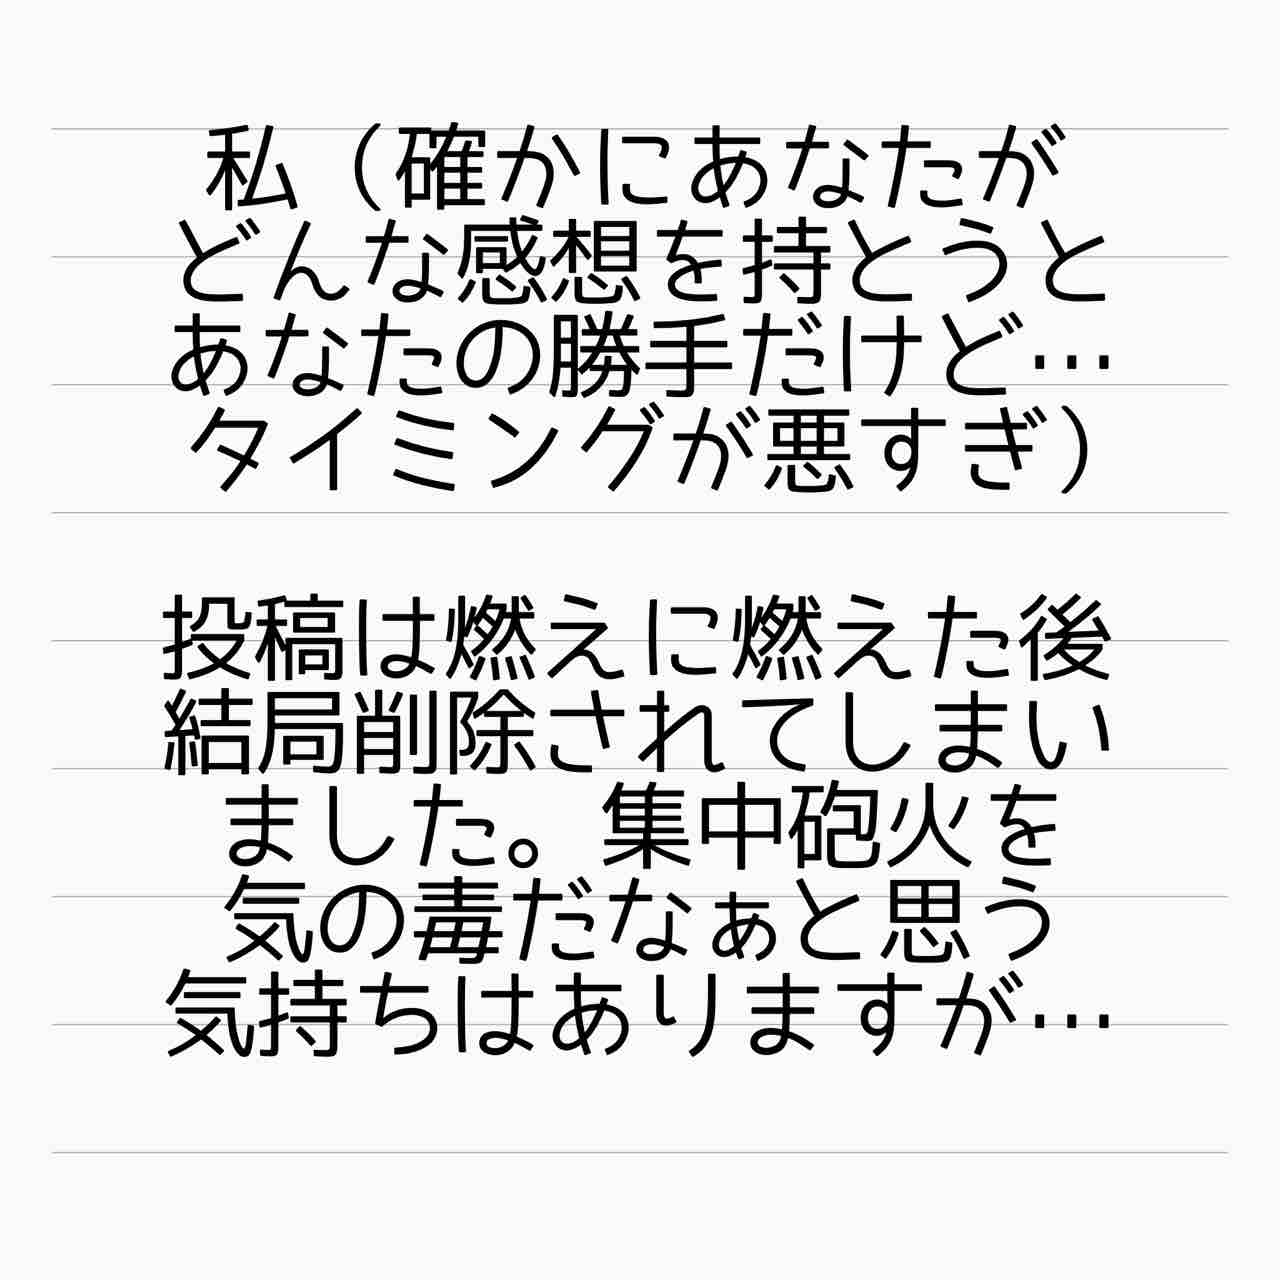 私（確かにあなたが
どんな感想を持とうと
あなたの勝手だけど…
タイミングが悪すぎ）
投稿は燃えに燃えた後
結局削除されてしまい
ました。集中砲火を
気の毒だなぁと思う
気持ちはありますが…